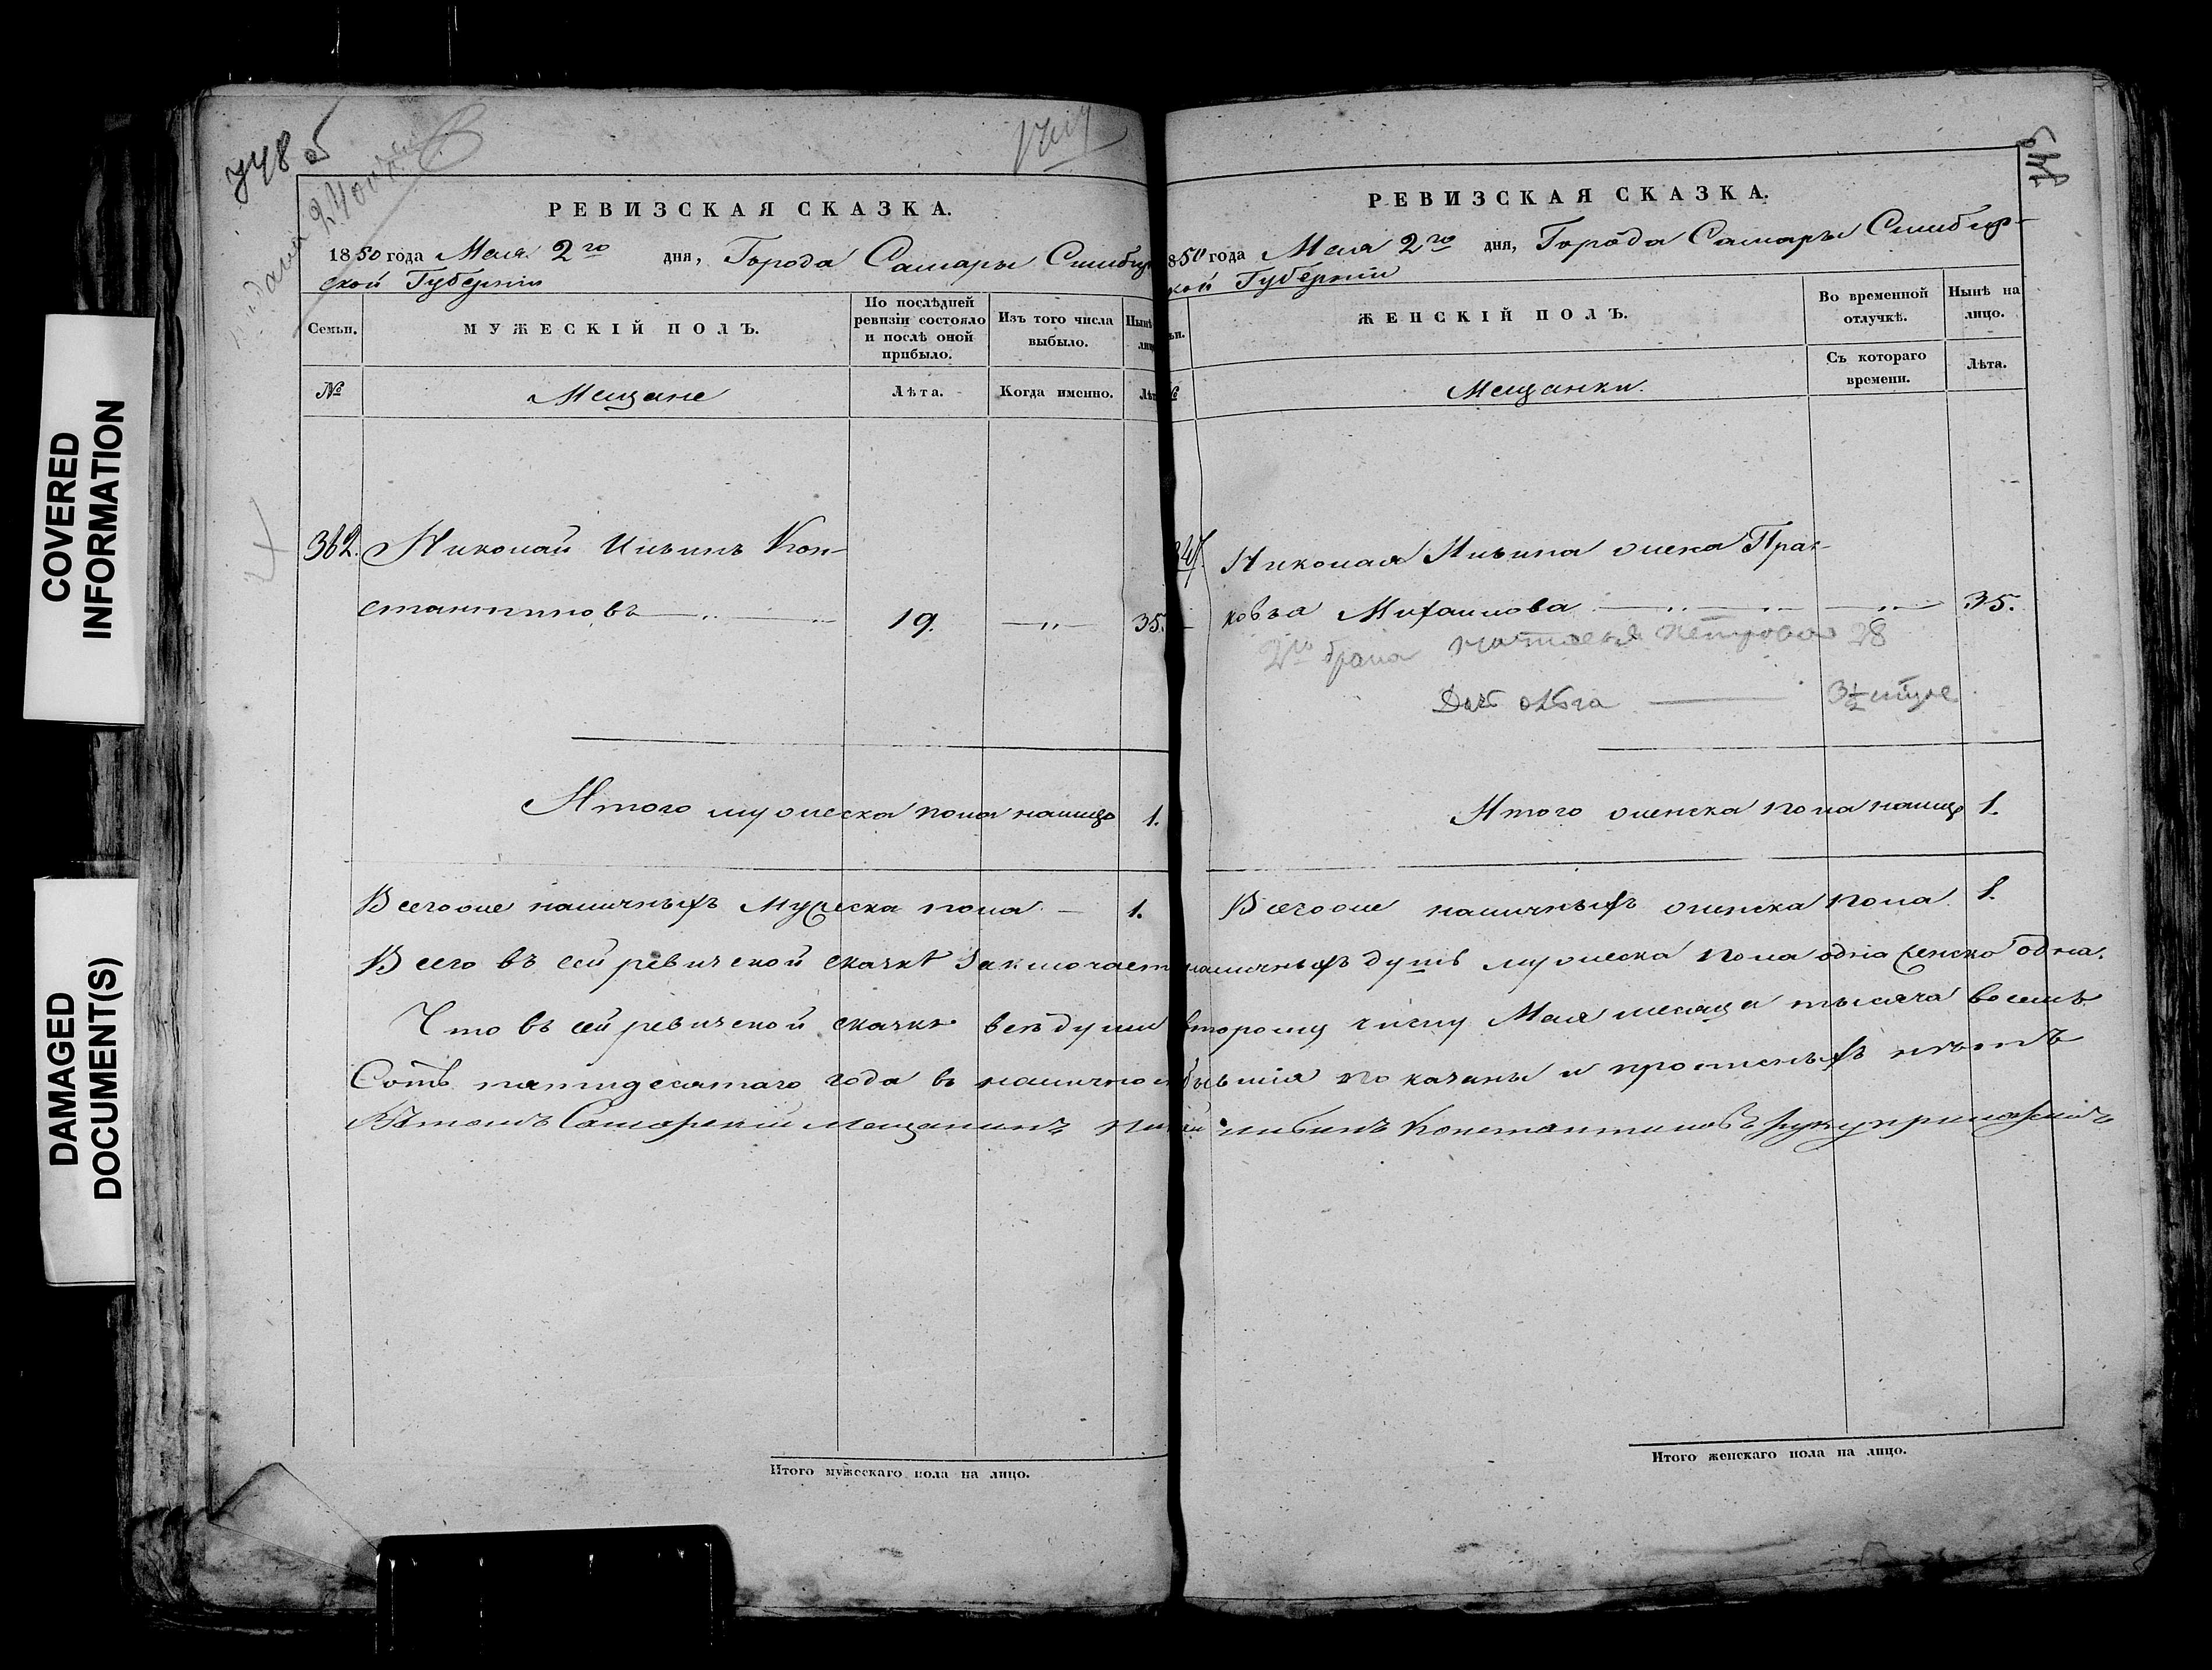 748 об
РЕВИЗСКАЯ СКАЗКА.
1850 года Мая 2го дня, Города Самары Симбир
ской Губерніи
Семьи.
МУЖЕСКІЙ ПОЛЪ.
По послѣдней
ревизіи состояло
и послѣ оной
прибыло.
Изъ того числа
выбыло.
Нынѣ
№
Мещане
Лѣта.
Когда именно.
Лѣт
362. Николай Ильинъ Кон-
стантиновъ 19. 35.
Итого мужеска пола налицо 1.
Всегоже наличныхъ Мужеска пола 1.
Итого мужескаго пола на лицо.
749
РЕВИЗСКАЯ СКАЗКА.
850 года Мая 2го дня, Города Самары Симбир-
кой Губерніи
ЖЕНСКІЙ ПОЛЪ.
Во временной
отлучкѣ.
Нынѣ на
лицо.
Мещанки.
Съ котораго
времени.
Лѣта.
Николая Ильина жена Прас-
ковья Михаилова 35.
2го брака Наталья Петрова 28
Дочь Ольга 3½
Итого женска пола налицо 1.
Всегоже наличныхъ женска пола 1.
Всего въ сей ревизской сказкѣ Заключает наличныхъ душъ мужеска пола одна женско одна.
Что въ сей ревизской сказке все души второму числу Мая месяца тысяча восемь
Сотъ пятидесятаго года въ налично бывшія показаны и прописныхъ нѣтъ
Вътомъ Самарскій мещанинъ Ник ай ильинъ Константиновъ руку приложилъ
Итого женскаго пола на лицо.
COVERED
INFORMATION
DAMAGED
DOCUMENT(S)